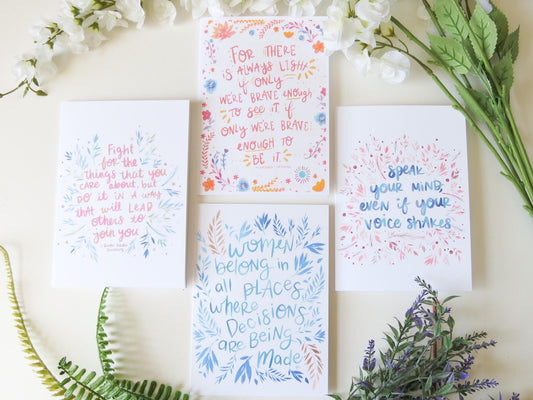 FOR THERE
IS ALWAYS LIGHT
if ONLY
WE'RE BRAVE ENOUGH
TO SEE IT if
ONLY WE'RE BRAVE
ENOUGH TO
BE IT.
Fight
FOR the
THINGS THAT YOU
CARE ABOUT, BUT
DO IT IN A WAY
THAT will LEAD
others to
join you
Speak
YOUR MIND,
EVEN if YOUR
VOICE SHAKES
Women
BELONG in
all PLACES
where
DECISIONS
ARE BEING
Made